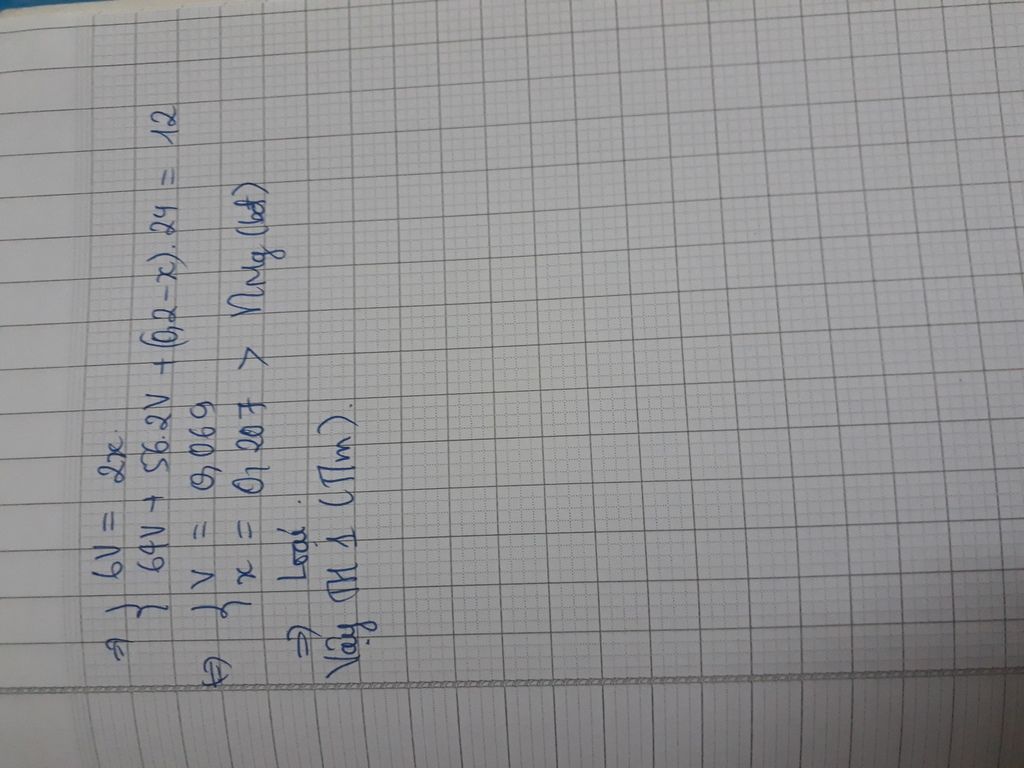 ⇒ } 6V = 2x.
} 64V + 56.2V + (0,2-x).24 = 12
⇔ } V = 0,069
} x = 0,207 > nMg (bđ)
⇒ Loại.
Vậy TH 1 (Tm).